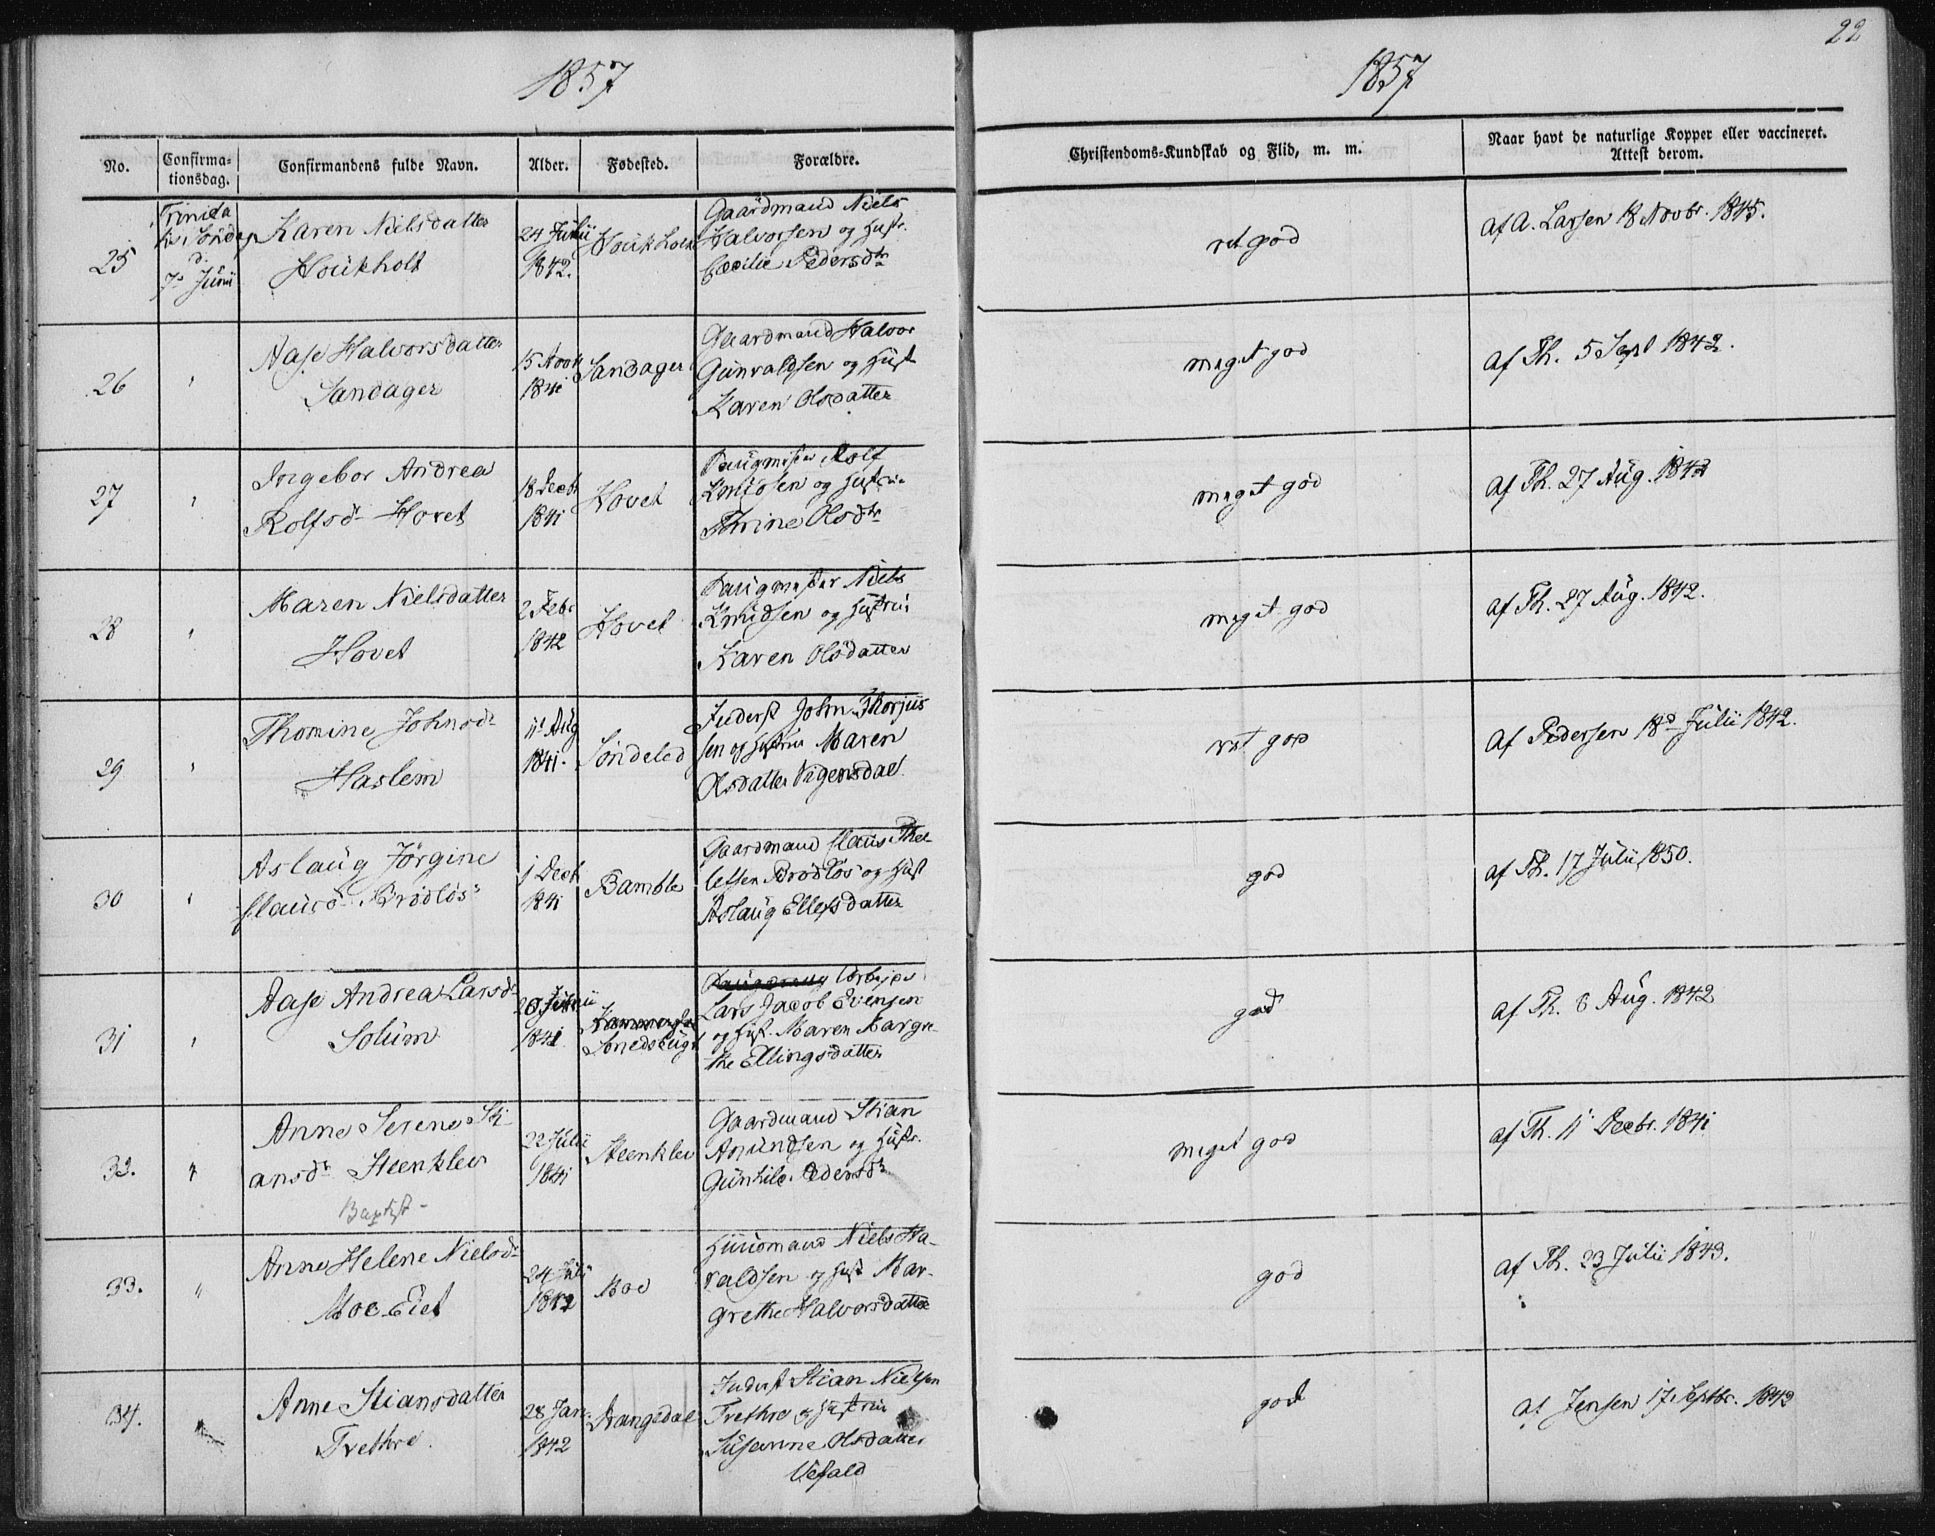 22
1857
1857
No.
Confirma-
tionsdag.
Confirmandens fulde Navn.
Alder.
Fødested.
Forældre.
Christendoms-Kundskab og Flid, m. m.
Naar havt de naturlige Kopper eller vaccineret.
Attest derom.
25
Trinita
tis Söndag
d.
7d Juni
Karen Nielsdatter
Houkholt
24 Julii
1842.
Houkholt
Gaardmand Niels
Halvorsen og Hustr.
Cecilie Pedersdtr
ret god
af A. Larsen 18 Novbr. 1845.
26
"
Aase Halvorsdatter
Sandager
15 Novb
1841
Sandager
Gaardmand Halvor
Gunvaldsen og Hust
Karen Olsdatter
meget god
af Th. 5 Sept 1842.
27
"
Ingebor Andrea
Rolfsdr Hovet
18 Decbr
1841
Hovet
Laugmester Rolf
Knudsen og Hustrue
Thrine Olsdtr
meget god
af Th. 27 Aug. 1842
28
"
Maren Nielsdatter
Hovet
2 Febr
1842
Hovet
Laugmester Niels
Knudsen og Hustrui
Karen Olsdatter
meget god
af Th. 27 Aug. 1842.
29
"
Thomine Johnsdr
Haslem
11t Aug
1841.
Söndeled
Inderst John Thorjus
sen og Hustru Maren
Olsdatter Vigensdal
ret god
af Pedersen 18d Julii 1842.
30
"
Aslaug Jörgine
Clausdr Brödlös
1 Decb
1841
Bamble
Gaardmand Claus Thel-
lefsen Brödlös og Hust
Aslaug Ellefsdatter
god
af Th. 17 Julii 1850.
31
"
Aase Andrea Larsdr
Solum
1841
Lars Jacob Evensen
og Hust. Maren Margre-
the Ellingsdatter
god
af Th. 8 Aug. 1842
32.
"
Anne Serene Sti
ansdtr Steenklev
Baptist -
22 Julii
1841
Steenklev
Gaardmand Stian
Amundsen og Hustr.
Gunhild Pedersdtr
meget god
af Th. 11 Decbr. 1841
33.
"
Anne Helene Nielsdr
Moe Eiet
24 Juli
1842
Moe
Huusmand Niels Ha-
raldsen og Hust Mar-
grethe Halvorsdatter
god
af Th. 23 Julii 1843.
34.
"
Anne Stiansdatter
Trethre.
28 Jan.
1842
Drangedal
Inderst Stian Nielsen
Trethre og Hustrui
Susanne Olsdatter
Vefald
god
af Jensen 17 Septbr. 1842